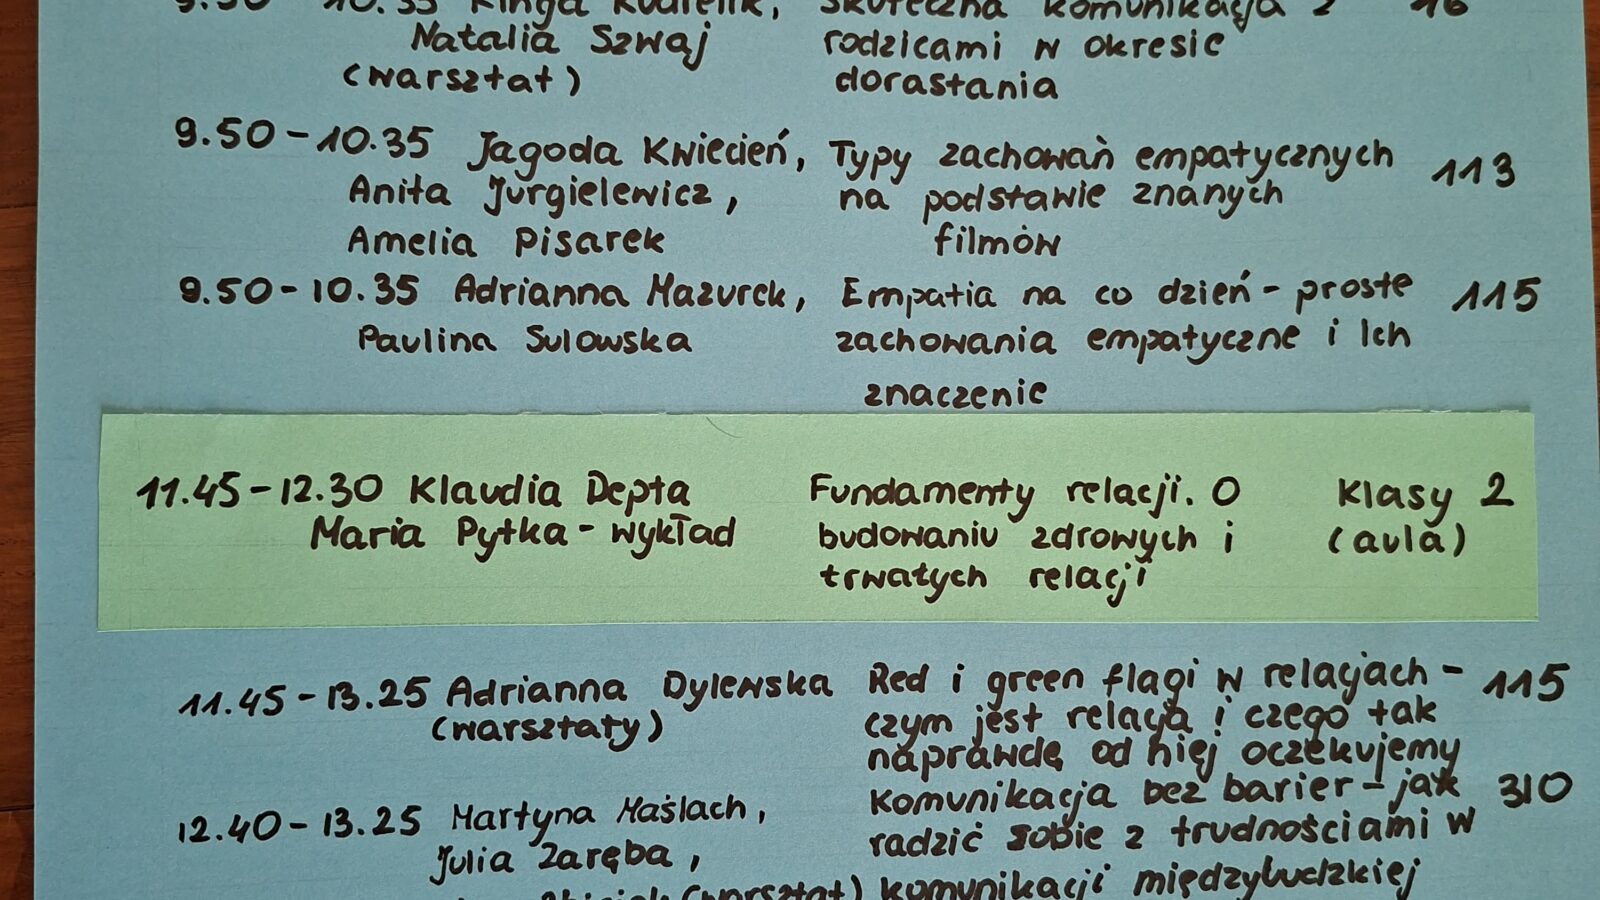 9.50 - 10.35 Kinga Kudełik, Skuteczna komunikacja z 16
Natalia Szwaj rodzicami w okresie
(warsztat) dorastania
9.50 - 10.35 Jagoda Kwiecień, Typy zachowań empatycznych 113
Anita Jurgielewicz, na podstawie znanych
Amelia Pisarek filmów
9.50 - 10.35 Adrianna Mazurek, Empatia na co dzień - proste 115
Paulina Sulowska zachowania empatyczne i Ich
znaczenie
11.45 - 12.30 Klaudia Depta Fundamenty relacji. O Klasy 2
Maria Pytka - wykład budowaniu zdrowych i (aula)
trwałych relacji
11.45 - 13.25 Adrianna Dylewska Red i green flagi w relacjach - 115
(warsztaty) czym jest relacja i czego tak
naprawdę od niej oczekujemy
12.40 - 13.25 Martyna Maślach, Komunikacja bez barier - jak 310
Julia Zaręba, radzić sobie z trudnościami w
(warsztat) komunikacji międzyludzkiej